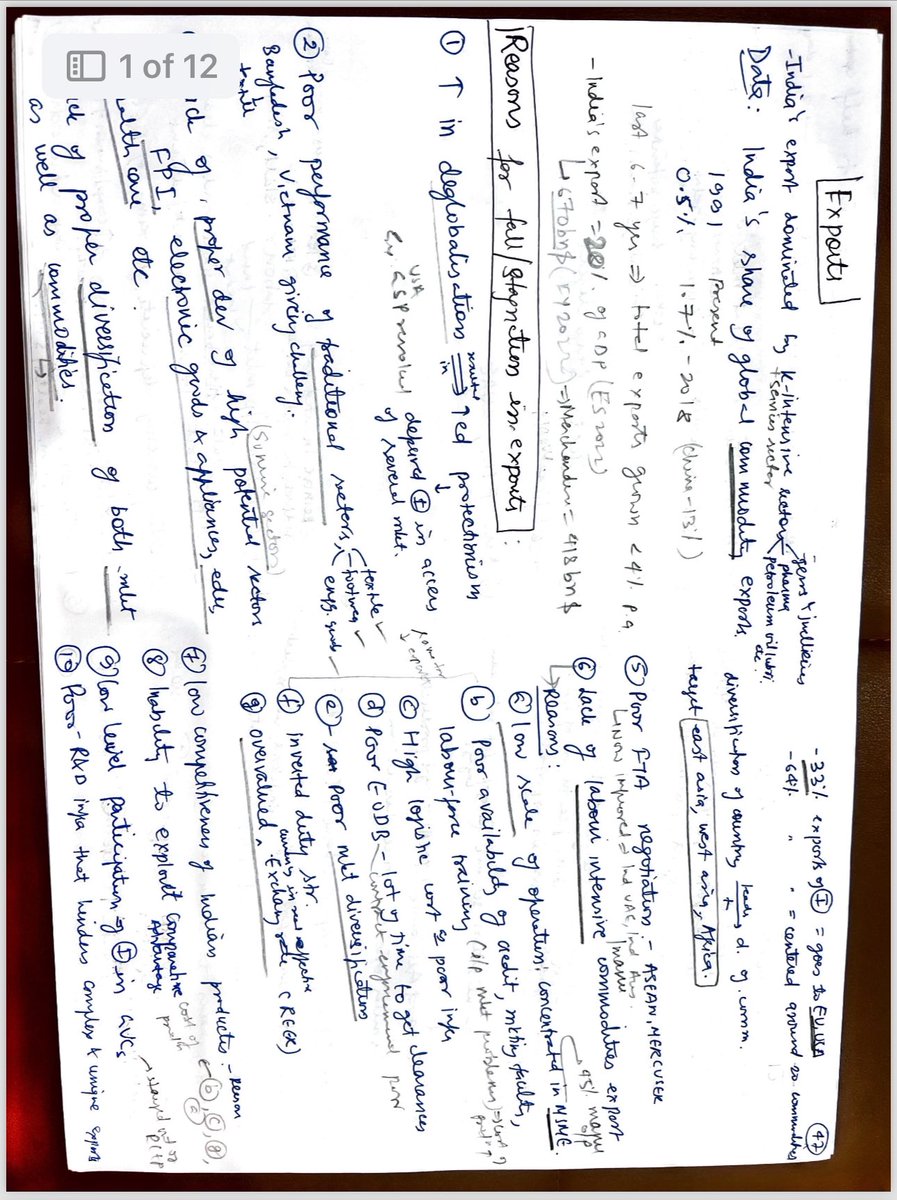 1 of 12
47
Exports
- India's export dominated by K-intensive sectors
+ services sector
gems & jwelleries
pharma
petroleum oil lubri.
etc.
Data: India's share of global commodity exports.
1991 present
0.5% 1.7% - 2018 (China - 13%)
last 6-7 yrs ⇒ total exports grown < 4% p.a.
- India's export = 20% of GDP (ES 2022)
↳ 670bn$ (FY2022) ⇒ Merchandise = 418bn$
Reasons for fall/stagnation in exports:
① ↑ in deglobalisation ⟹ ↑ed protectionism
results in
↓
deprived Ⓘ in access of several mkt.
USA
GSP revoked
② Poor performance of traditional sectors,
textile ✓
footwear ✓
engg. goods ✓
Bangladesh, Vietnam giving challeng.
textile
ck of proper dev of high potential sectors
(Sunrise sectors)
FPI, electronic goods & appliances, edu
health care etc.
ck of proper diversification of both mkt
as well as commodities.
- 33% exports of Ⓘ = goes to EU, USA
- 64% " " = centered around 20 commodities
diversification of country leads to d. of comm.
target east asia, west asia, Africa.
⑤ Poor FTA negotiations - ASEAN, MERCUSER
↳ Now improved ⇒ Ind UAE, Ind Aus.
⑥ Lack of labour intensive commodities export
↳ Reasons:
ⓐ low scale of operation: concentrated in MSME.
45% manu o/p
ⓑ Poor availability of credit, mkting facults,
labour-force training
ⓒ High logistic cost & poor infra
ⓓ Poor EODB - lot of time to get clearances
- contract enforcement poor
ⓔ - Poor mkt diversification
ⓕ inverted duty str.
ⓖ overvalued currency in real effective Exchang rate (REER)
⑦ low competitiveness of Indian products - reason
ⓑ, ⓒ, ⓖ,
ⓐ
⑧ Inability to exploit comparative advantage
cost of
⑨ low level participation of Ⓘ in GVCs
⑩ Poor - R&D infra that hinders complex & unique exports